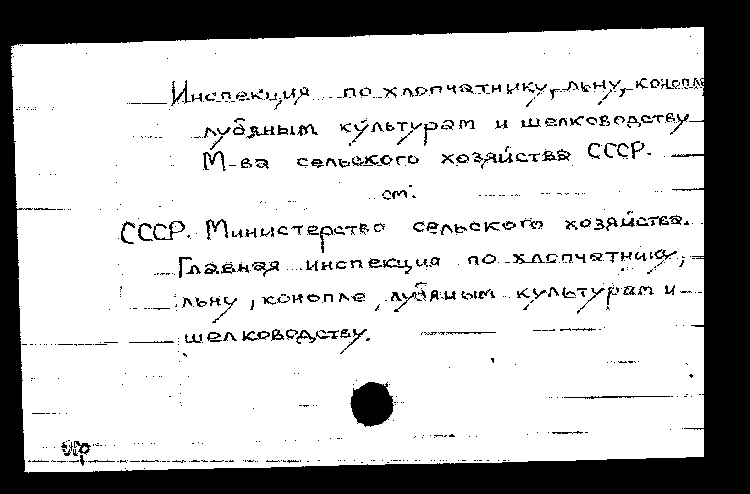 Инспекция по хлопчатнику, льну, конопле
лубяным культурам и шелководству
М-ва сельского хозяйства СССР.
см:
СССР. Министерство сельского хозяйства.
Главная инспекция по хлопчатнику,
льну, конопле, лубяным культурам и
шелководству.